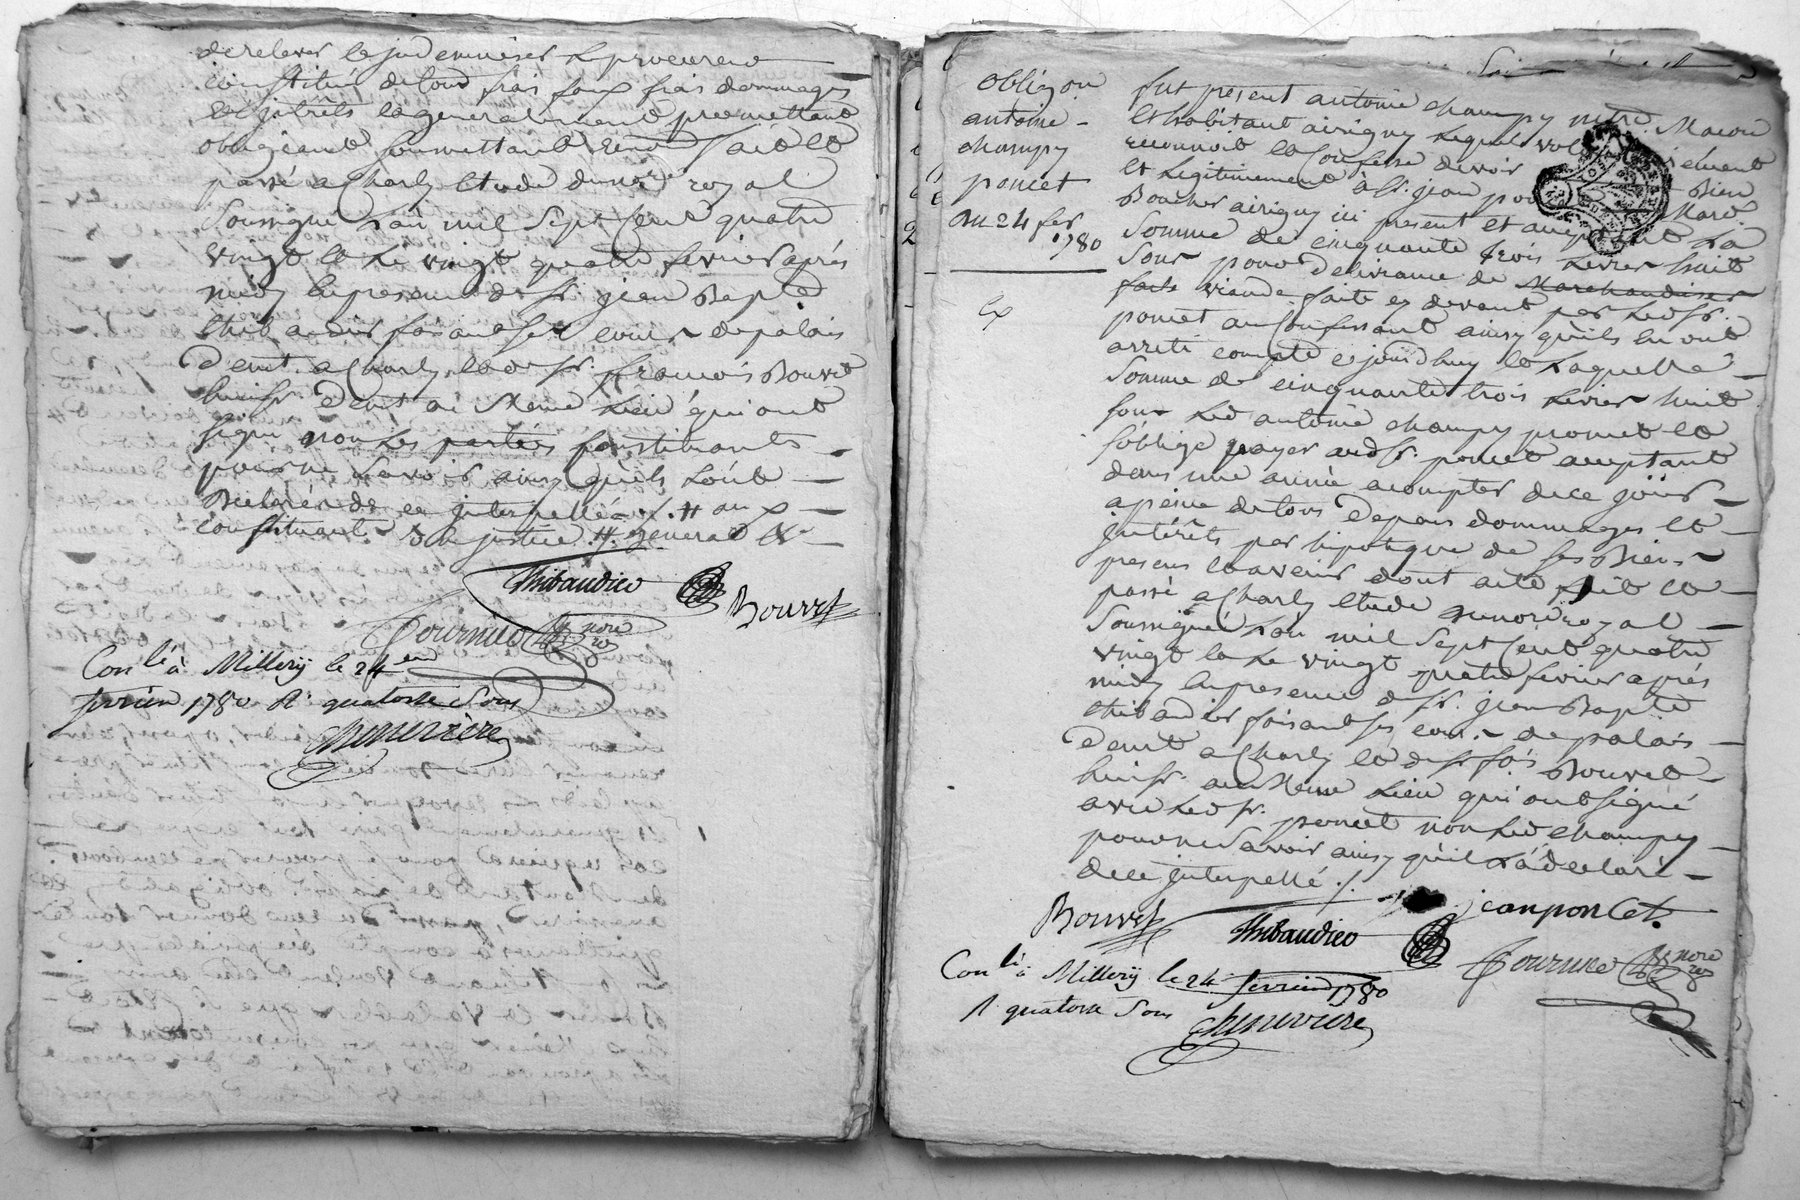 de relever et indemniser le procureur
constitué de tous frais faux frais dommages
et interêts et generalement promettant
obligeant soumettant renon. fait et
passé a Charly etude du no.re royal
soussigné l'an mil sept cent quatre
vingt et le vingt quatre fevrier après
midy en presence de Sr. jean Bapte
thibaudier faisant ses cours de palais
demt. a Charly, et de Sr. françois Bouvet
huissr. demt au meme Lieu qui ont
signé non Les parties constituants
pour ne savoir ainsy qu'ils l'ont
declaré de ce interpellés ./. # aux
constituants # general &
Thibaudier
Bouvet
Fournier no.re roy
Con.lé à Millery le 24 en
fevrier 1780 R. quatorze sous
Chenevriere
Obligaon
antoine
champy
poncet
du 24 fer
1780
Ex
fut present antoine champy mtre. Macon
et habitant a irigny Lequel
reconnoit et Confesse devoir Bien
et Legitimement à Sr. jean Mard.
Boucher a irigny ici present et acceptant La
Somme de cinquante trois Livres huit
Sous pour delivrance de Marchandises
faite viande faite cy devant par Led Sr.
poncet au Confessant ainsy qu'ils en ont
arreté compte ejourd'huy et Laquelle
Somme de cinquante trois Livres huit
sous Led antoine champy promet et
s'oblige payer aud Sr. poncet acceptant
dans une année a compter de ce jour
a peine de tous depens dommages et
interêts par hipoteque de ses Biens
presens et avenir dont acte fait et
passé a Charly etude du no.re royal
Soussigné L'an mil sept Cent quatre
vingt et le vingt quatre fevrier après
midy en presence de Sr. jean Bapte
thibaudier faisant ses cours de palais
demt a Charly et de Sr. fois Bouvet
huissr. au meme Lieu qui ont signé
avec Led Sr. poncet non Led champy
pour ne savoir ainsy qu'il l'a declaré
de ce interpellé ./.
jean poncet.
Bouvet
Thibaudier
Fournier no.re roy
Con.lé à Millery le 24 fevrier 1780
R. quatorze sous
Chenevriere